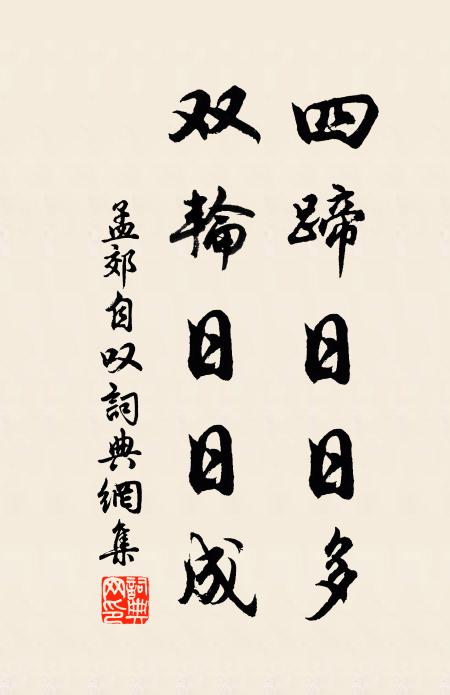 四蹄日日多
双輪日日成
孟郊自叹詞典網集
詞典网印